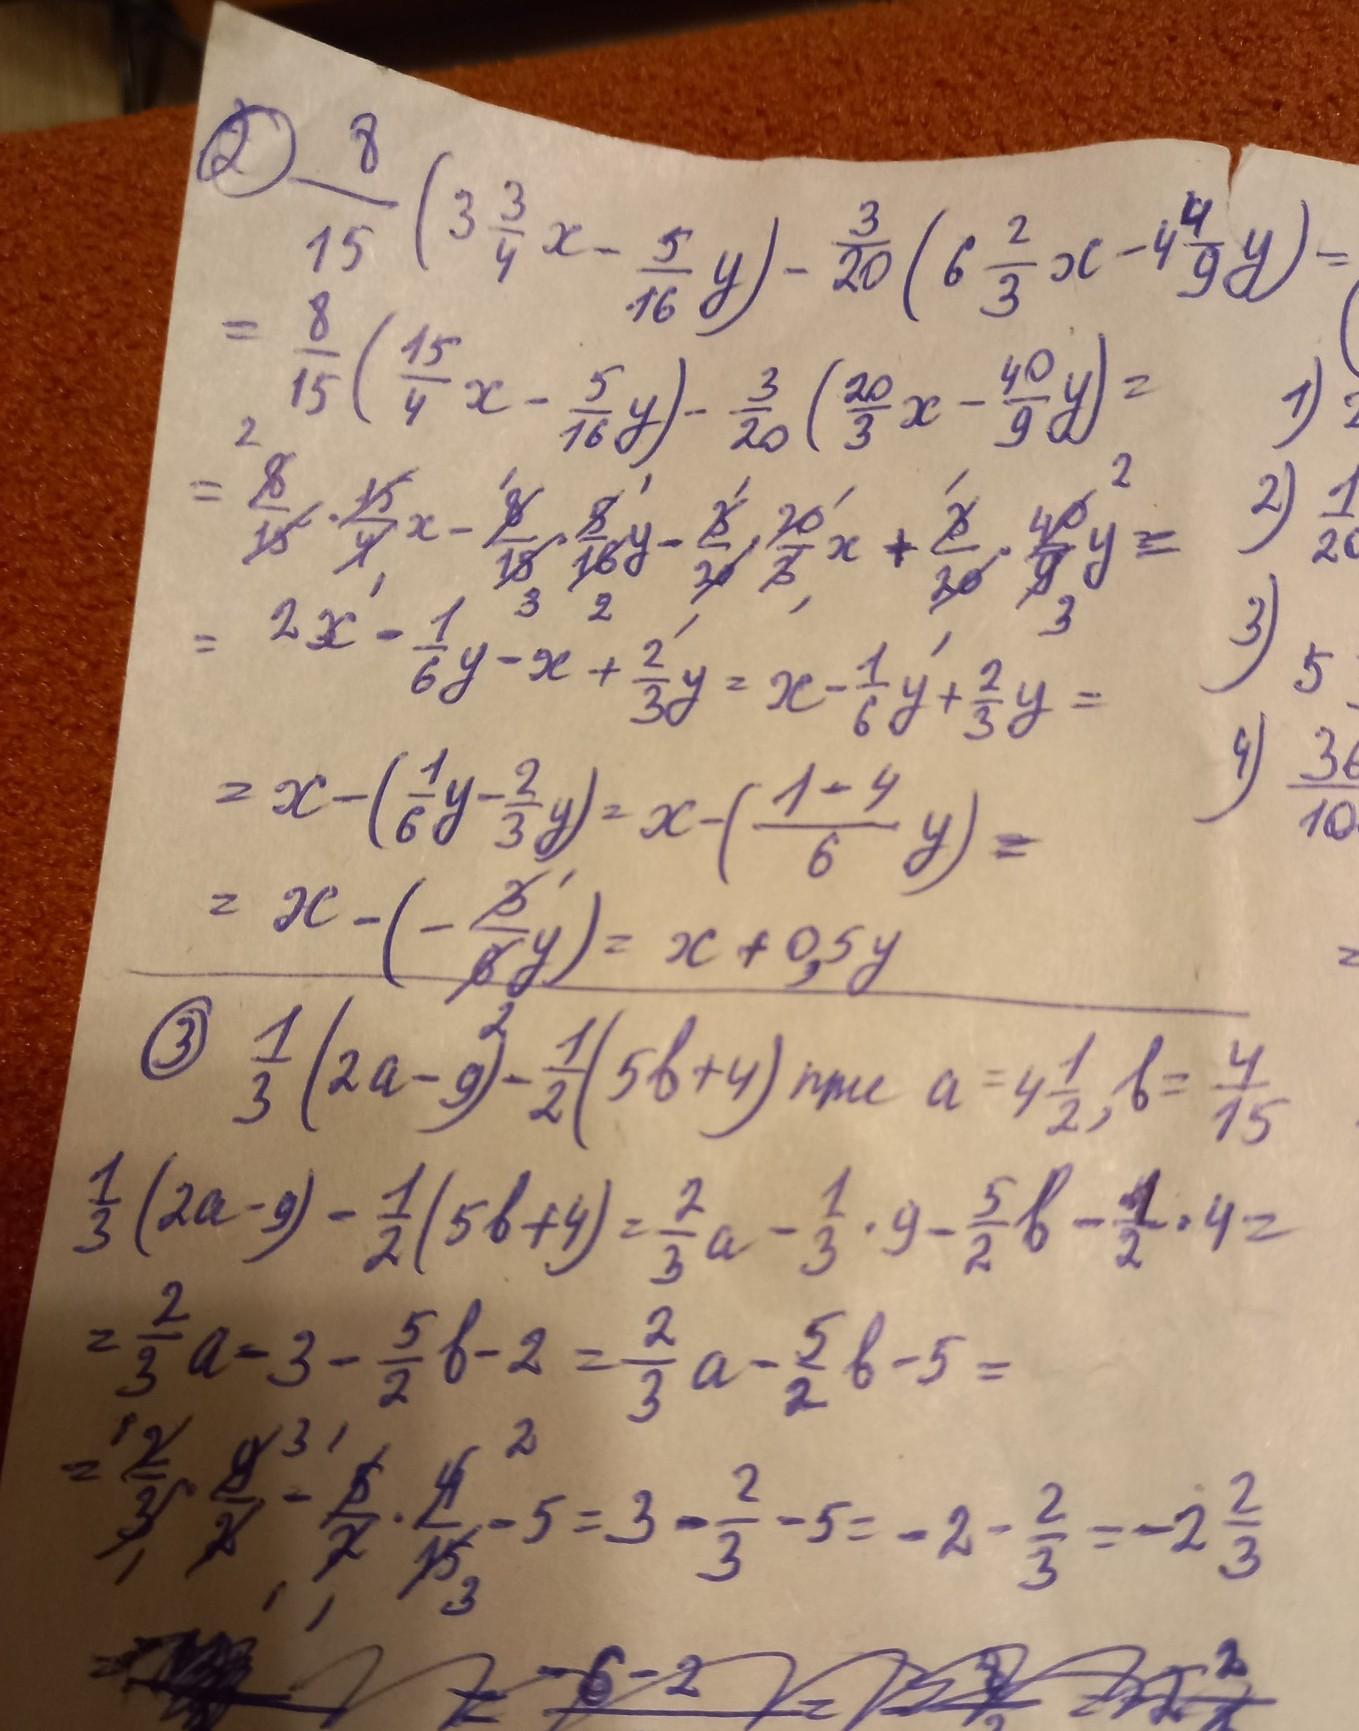 ② 8/15 (3 3/4 x - 5/16 y) - 3/20 (6 2/3 x - 4 4/9 y) =
= 8/15 (15/4 x - 5/16 y) - 3/20 (20/3 x - 40/9 y) =
= 8/15 · 15/4 x - 8/15 · 5/16 y - 3/20 · 20/3 x + 3/20 · 40/9 y =
= 2x - 1/6 y - x + 2/3 y = x - 1/6 y + 2/3 y =
= x - (1/6 y - 2/3 y) = x - ((1 - 4)/6 y) =
= x - (- 3/6 y) = x + 0,5y
③ 1/3 (2a - 9) - 1/2 (5b + 4) при a = 4 1/2, b = 4/15
1/3 (2a - 9) - 1/2 (5b + 4) = 2/3 a - 1/3 · 9 - 5/2 b - 1/2 · 4 =
= 2/3 a - 3 - 5/2 b - 2 = 2/3 a - 5/2 b - 5 =
= 2/3 · 9/2 - 5/2 · 4/15 - 5 = 3 - 2/3 - 5 = - 2 - 2/3 = - 2 2/3
1)
2) 1/20
3) 5
4) 36/10